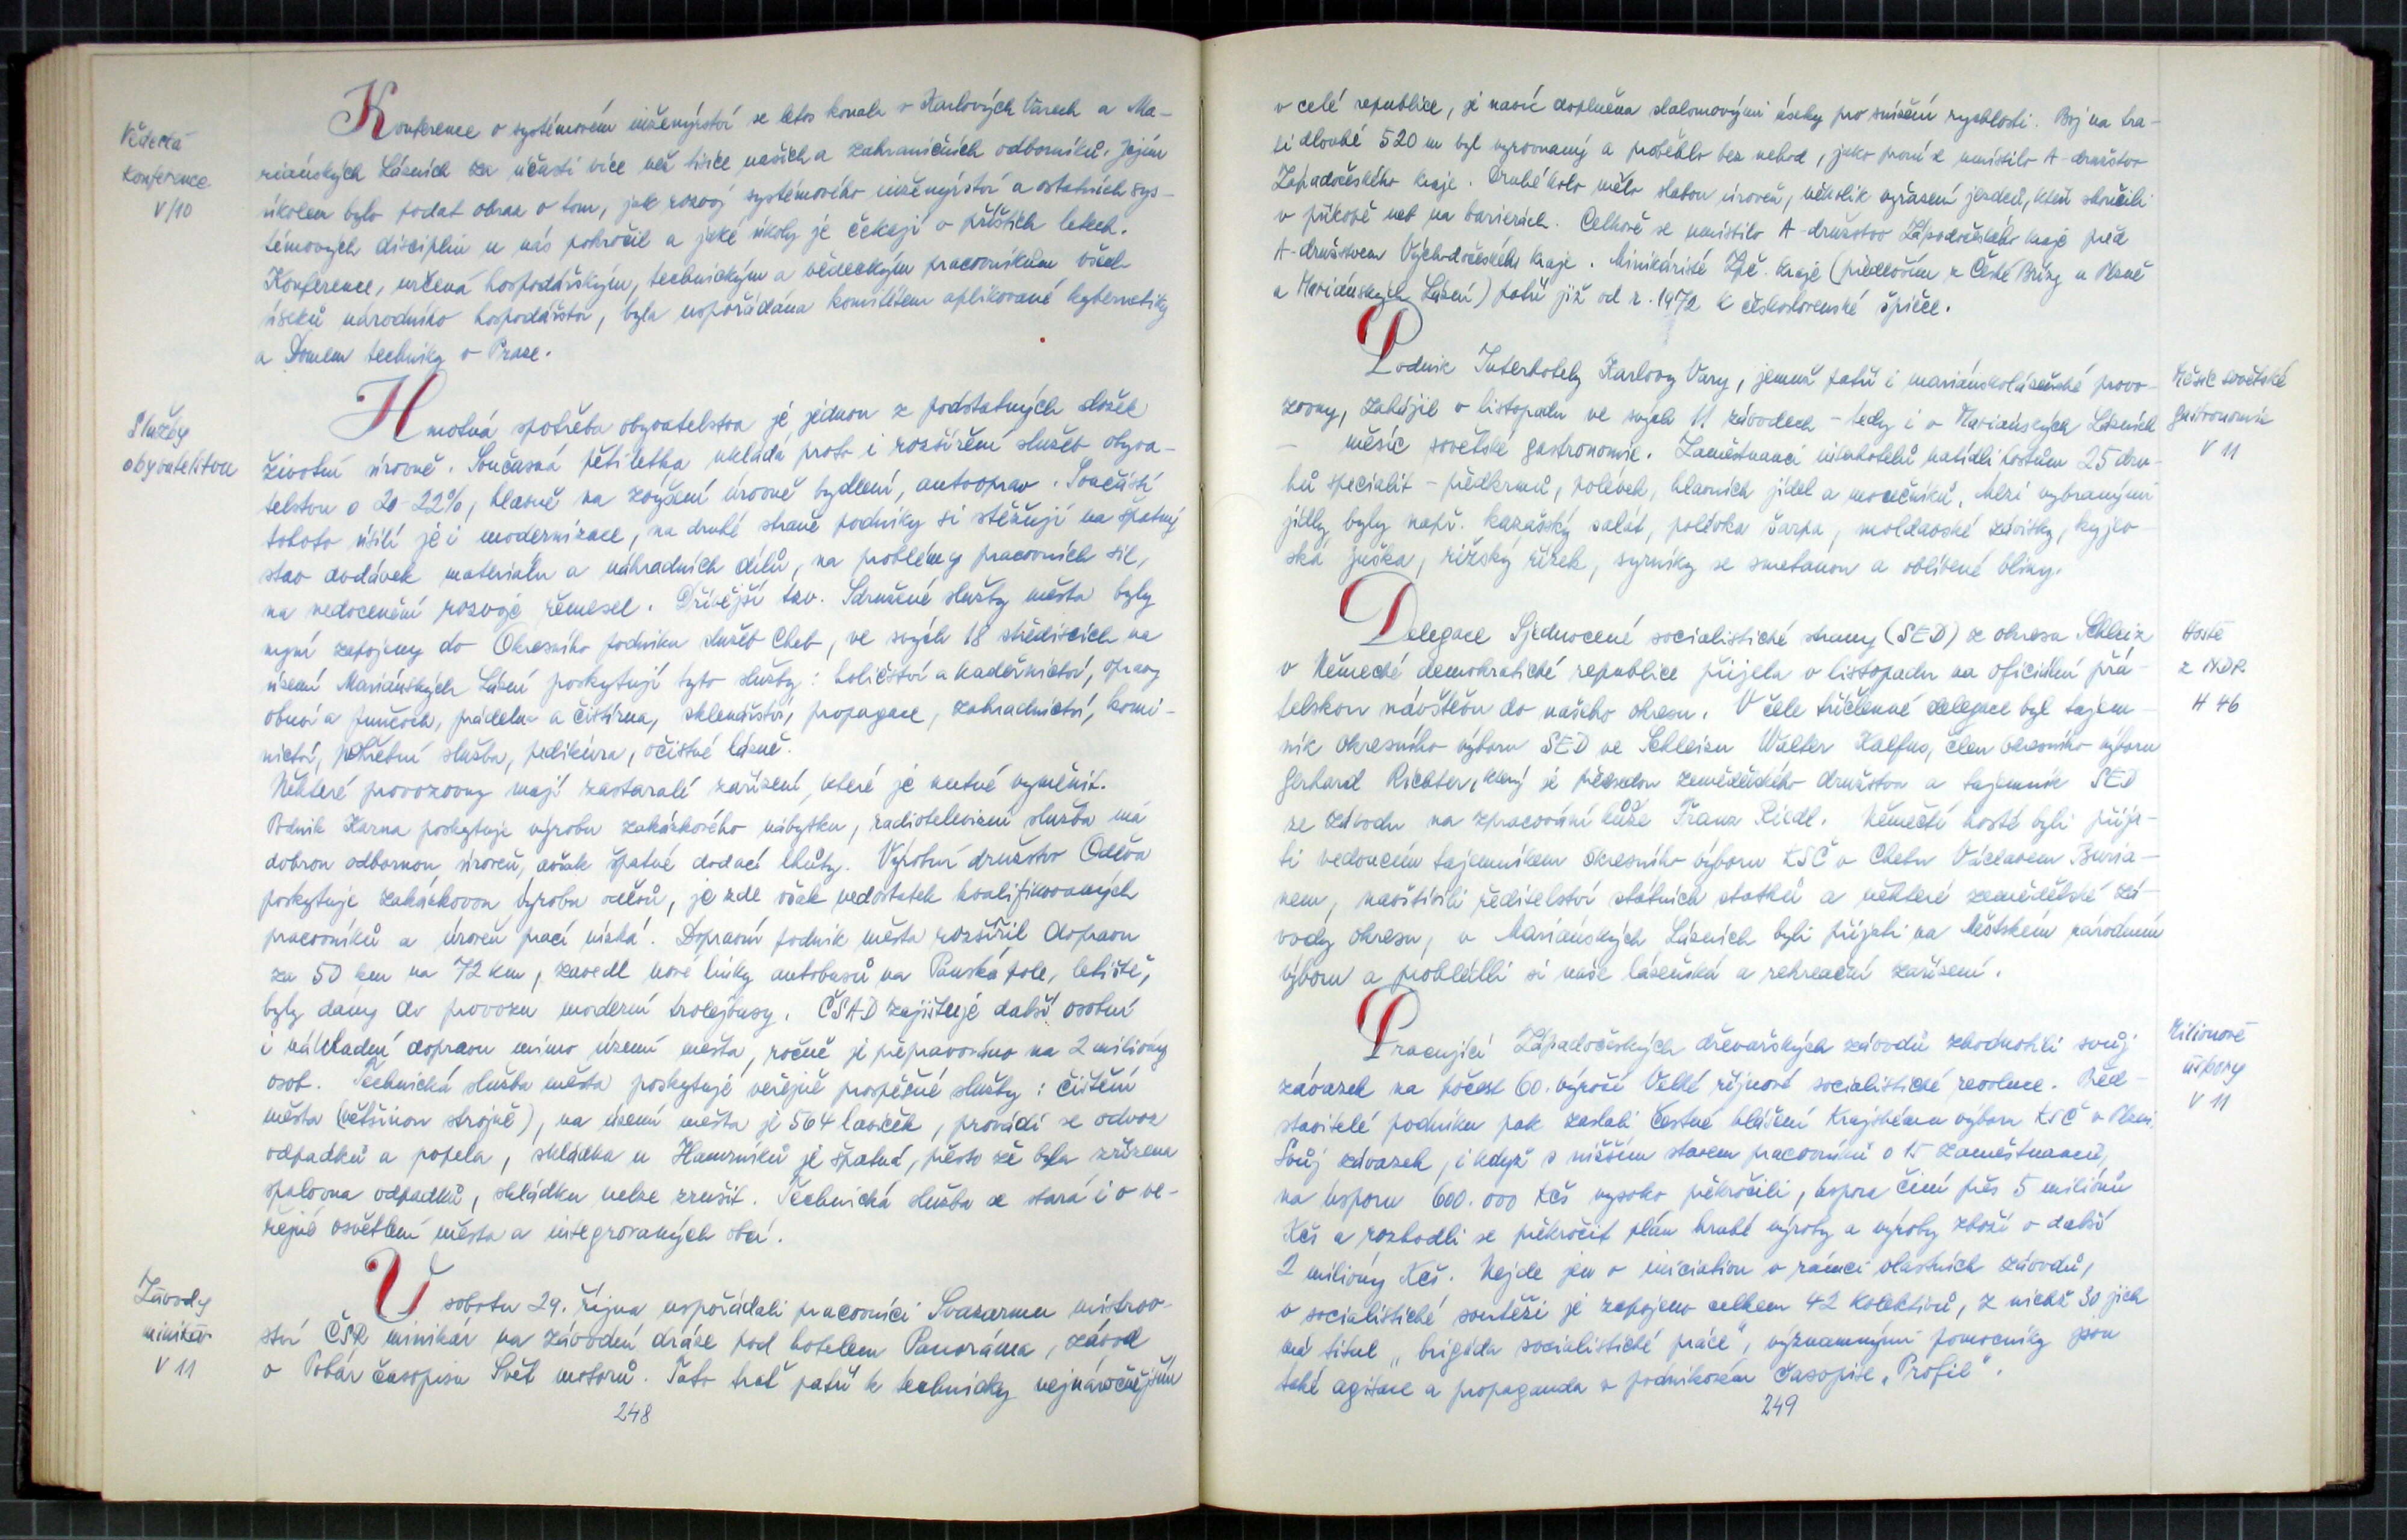 Vědecká
Konference
V/10
Konference o systémovém inženýrství se letos konala v Karlových Varech a Ma-
riánských Lázních za účasti více než tisíce našich a zahraničních odborníků. Jejím
úkolem bylo podat obraz o tom, jak rozvoj systémového inženýrství a ostatních sys-
témových disciplin u nás pokročil a jaké úkoly je čekají v příštích letech.
Konference, určená hospodářským, technickým a vědeckým pracovníkům všech
úseků národního hospodářství, byla uspořádána komitétem aplikované kybernetiky
a Domem techniky v Praze.
Služby
obyvatelstvu
Hmotná spotřeba obyvatelstva je jednou z podstatných složek
životní úrovně. Současná pětiletka ukládá proto i rozšíření služeb obyva-
telstvu o 20-22%, hlavně na zvýšení úrovně bydlení, autooprav. Součástí
tohoto úsilí je i modernizace, na druhé straně podniky si stěžují na špatný
stav dodávek materiálu a náhradních dílů, na problémy pracovních sil,
na nedocenění rozvoje řemesel. Dřívější tzv. Sdružené služby města byly
nyní zapojeny do Okresního podniku služeb Cheb, ve svých 18 střediscích na
území Mariánských Lázní poskytují tyto služby: holičství a kadeřnictví, opravy
obuvi a punčoch, prádelna a čistírna, sklenářství, propagace, zahradnictví, komi-
nictví, pohřební služba, pedikúra, očistné lázně.
Některé provozovny mají zastaralé zařízení, které je nutné vyměnit.
Podnik Karna poskytuje výrobu zakázkového nábytku, radiotelevizní služba má
dobrou odbornou úroveň, avšak špatné dodací lhůty. Výrobní družstvo Oděva
poskytuje zakázkovou výrobu oděvů, je zde však nedostatek kvalifikovaných
pracovníků a úroveň prací nízká. Dopravní podnik města rozšířil dopravu
za 50 km na 72 km, zavedl nové linky autobusů na Panská pole, letiště,
byly dány do provozu moderní trolejbusy. ČSAD zajišťuje další osobní
i nákladní dopravu mimo území města, ročně je přepravováno na 2 milióny
osob. Technická služba města poskytuje veřejně prospěšné služby: čištění
města (většinou strojně), na území města je 564 laviček, provádí se odvoz
odpadků a popela, skládka u Hamrníků je špatná, přesto že byla zřízena
spalovna odpadků, skládku nelze zrušit. Technická služba se stará i o ve-
řejné osvětlení města a integrovaných obcí.
Závody
minikár
V 11
V sobotu 29. října uspořádali pracovníci Svazarmu mistrov-
ství ČSR minikár na závodní dráze pod hotelem Panoráma, závod
o Pohár časopisu Svět motorů. Tato trať patří k technicky nejnáročnějším
248
v celé republice, je navíc doplněna slalomovými úseky pro snížení rychlosti. Boj na tra-
ti dlouhé 520 m byl vyrovnaný a proběhlo bez nehod, jako první se umístilo A-družstvo
Západočeského kraje. Druhé kolo mělo slabou úroveň, několik vyřazení jezdců, kteří skončili
v příkopě neb na barierách. Celkově se umístilo A-družstvo Západočeského kraje před
A-družstvem Východočeského kraje. Minikáristé Zpč. kraje (především z České Břízy u Plzně
a Mariánských Lázní) patří již od r. 1972 k československé špičce.
Měsíc sovětské
gastronomie
V 11
Podnik Interhotely Karlovy Vary, jemuž patří i mariánskolázeňské provo-
zovny, zahájil v listopadu ve svých 11 závodech - tedy i v Mariánských Lázních
- měsíc sovětské gastronomie. Zaměstnanci interhotelů nabídli hostům 25 dru-
hů specialit - předkrmů, polévek, hlavních jídel a moučníků. Mezi vybranými
jídly byly např. kazašský salát, polévka šarpa, moldavské závitky, kyjev-
ská juška, rižský řízek, syrniky se smetanou a oblíbené bliny.
Hosté
z NDR
H 46
Delegace Sjednocené socialistické strany (SED) z okresu Schleiz
v Německé demokratické republice přijela v listopadu na oficiální přá-
telskou návštěvu do našeho okresu. V čele tříčlenné delegace byl tajem-
ník okresního výboru SED ve Schleizu Walter Kalfus, člen okresního výboru
Gerhard Richter, který je předsedou zemědělského družstva a tajemník SED
ze závodu na zpracování kůže Franz Riedl. Němečtí hosté byli přija-
ti vedoucím tajemníkem okresního výboru KSČ v Chebu Václavem Buria-
nem, navštívili ředitelství státních statků a některé zemědělské zá-
vody okresu, v Mariánských Lázních byli přijati na Městském národním
výboru a prohlédli si naše lázeňská a rekreační zařízení.
Milionové
úspory
V 11
Pracující Západočeských dřevařských závodů zhodnotili svůj
závazek na počest 60. výročí Velké říjnové socialistické revoluce. Před-
stavitelé podniku pak zaslali čestné hlášení Krajskému výboru KSČ v Plzni.
Svůj závazek, i když s nižším stavem pracovníků o 15 zaměstnanců,
na úsporu 600.000 Kčs vysoko překročili, úspora činí přes 5 miliónů
Kčs a rozhodli se překročit plán hrubé výroby a výroby zboží o další
2 milióny Kčs. Nejde jen o iniciativu v rámci vlastních závodů,
v socialistické soutěži je zapojeno celkem 42 kolektivů, z nichž 30 jich
má titul „brigáda socialistické práce", významnými pomocníky jsou
také agitace a propaganda v podnikovém časopise „Profil".
249